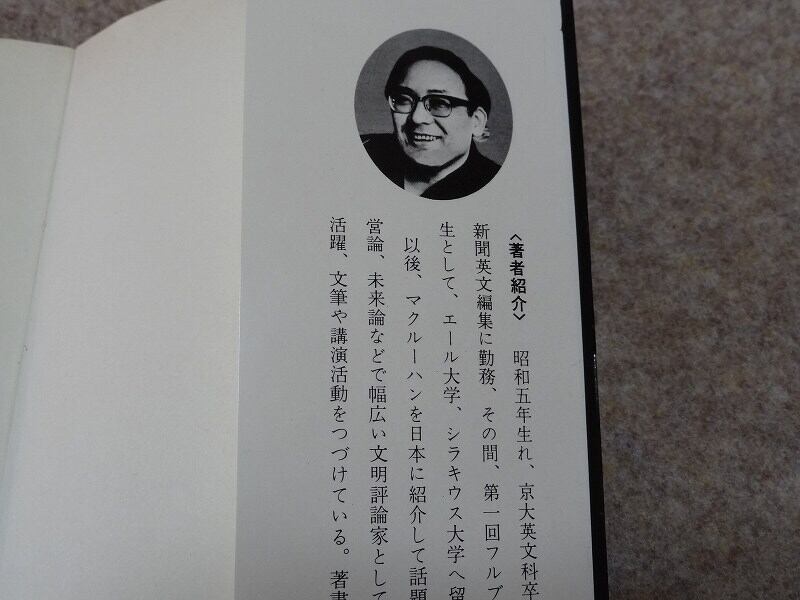 〈著者紹介〉 昭和五年生れ、京大英文科卒
新聞英文編集に勤務、その間、第一回フルブ
生として、エール大学、シラキウス大学へ留
以後、マクルーハンを日本に紹介して話題
営論、未来論などで幅広い文明評論家として
活躍、文筆や講演活動をつづけている。著書